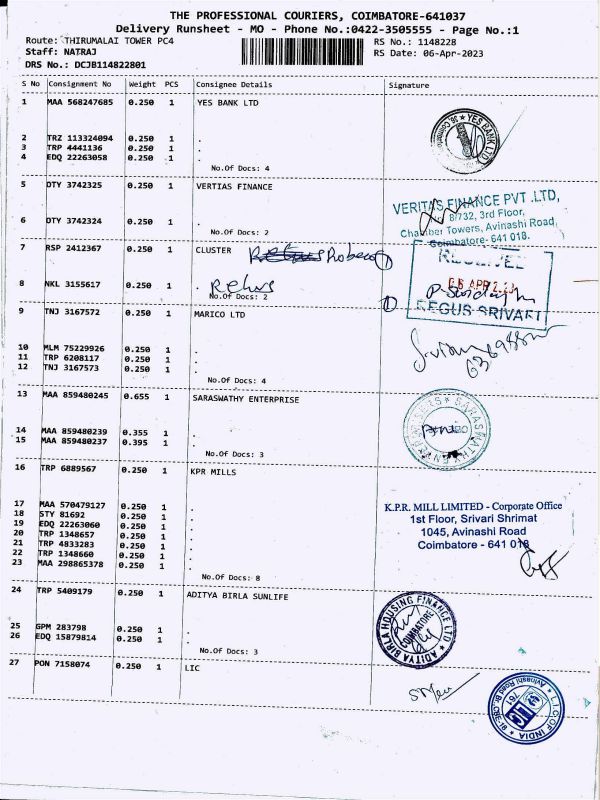 THE PROFESSIONAL COURIERS, COIMBATORE-641037
Delivery Runsheet - MO - Phone No.:0422-3505555 - Page No.:1
Route: THIRUMALAI TOWER PC4 RS No.: 1148228
Staff: NATRAJ RS Date: 06-Apr-2023
DRS No.: DCJB114822801
S No Consignment No Weight PCS Consignee Details Signature
1 MAA 568247685 0.250 1 YES BANK LTD
YES BANK LTD
2 TRZ 113324094 0.250 1 .
3 TRP 4441136 0.250 1 .
4 EDQ 22263058 0.250 1 .
No.Of Docs: 4
5 DTY 3742325 0.250 1 VERTIAS FINANCE
VERITAS FINANCE PVT .LTD,
8/732, 3rd Floor,
6 DTY 3742324 0.250 1 .
Chamber Towers, Avinashi Road,
No.Of Docs: 2
Coimbatore- 641 018.
7 RSP 2412367 0.250 1 CLUSTER
RECEIVED
8 NKL 3155617 0.250 1 .
06 APR 2023
No.Of Docs: 2
REGUS SRIVARI
9 TNJ 3167572 0.250 1 MARICO LTD
10 MLM 75229926 0.250 1 .
11 TRP 6208117 0.250 1 .
12 TNJ 3167573 0.250 1 .
No.Of Docs: 4
13 MAA 859480245 0.655 1 SARASWATHY ENTERPRISE
14 MAA 859480239 0.355 1 .
15 MAA 859480237 0.395 1 .
No.Of Docs: 3
16 TRP 6889567 0.250 1 KPR MILLS
17 MAA 570479127 0.250 1 .
K.P.R. MILL LIMITED - Corporate Office
18 STY 81692 0.250 1 .
1st Floor, Srivari Shrimat
19 EDQ 22263060 0.250 1 .
1045, Avinashi Road
20 TRP 1348657 0.250 1 .
21 TRP 4833283 0.250 1 .
Coimbatore - 641 018
22 TRP 1348660 0.250 1 .
23 MAA 298865378 0.250 1 .
No.Of Docs: 8
24 TRP 5409179 0.250 1 ADITYA BIRLA SUNLIFE
ADITYA BIRLA HOUSING FINANCE LTD
COIMBATORE
25 GPM 283798 0.250 1 .
26 EDQ 15879814 0.250 1 .
No.Of Docs: 3
27 PON 7158074 0.250 1 LIC
L.I.C OF INDIA
761
LIC